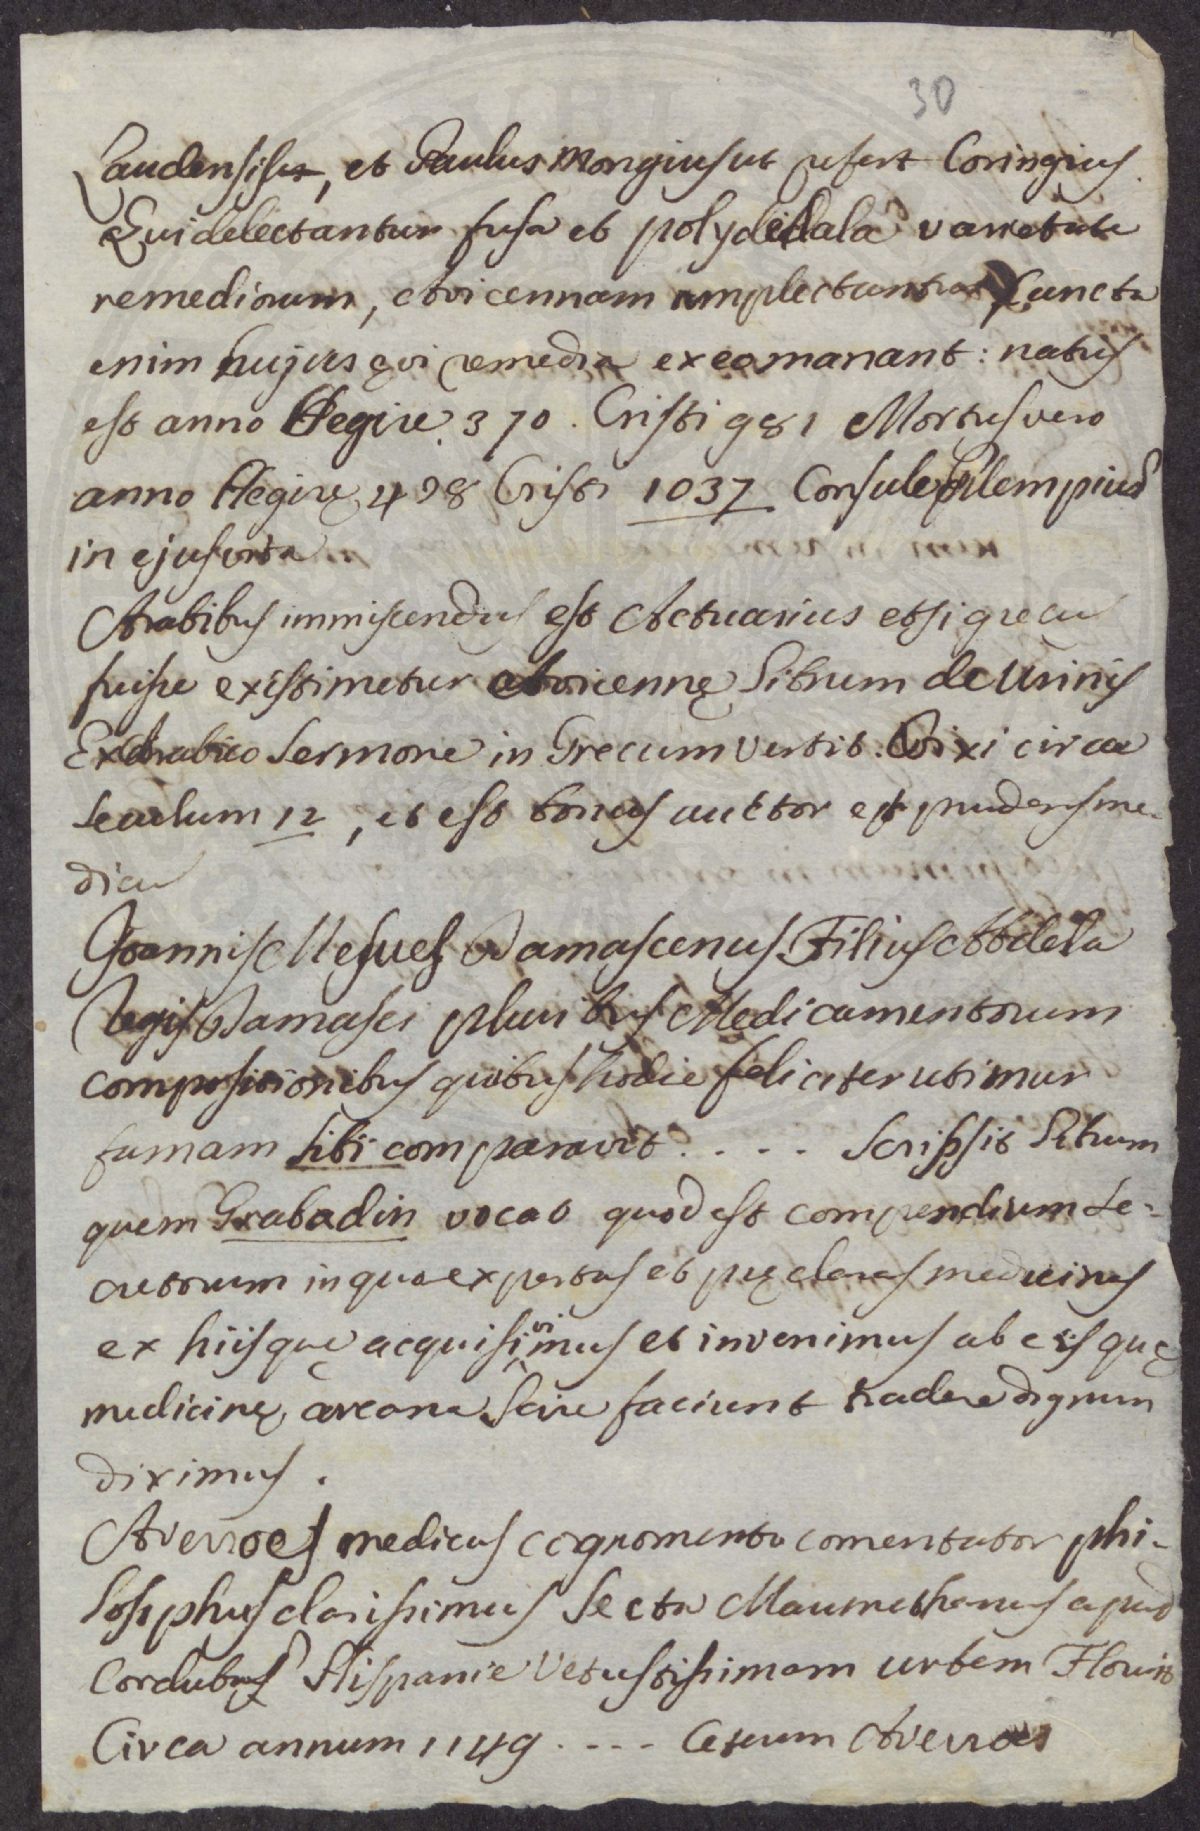 30
Laudensisus, et Paulus Mongius ut refert Coringius.
Qui delectantur fusa et polydedala varietate
remediorum, Avicennam amplectuntur Cuncta
enim hujus evi remedia ex eo manant: natus
est anno Hegire 370. Cristi 981 Mortus vero
anno Hegirę 428 Cristi 1037 Consule Plempius
in ejus vita
Arabibus immiscendus est Actuarius etsi grecus
fuisse existimetur Avicennę Librum de Urinis
Ex Arabico Sermone in Grecum vertit. Vixi circa
Seculum 12, et est bonus auctor et prudens me-
dicus
Joannis Mesues Damascenus Filius Abdela
Regis Damasci pluribus Medicamentorum
compositionibus quibus hodie feliciter utimur
famam sibi comparavit. . . . Scripsit Librum
quem Grabadin vocat quod est compendium Se-
cretorum in quo expertas et pręclaras medicinas
ex hiis quę acquisivimus et invenimus ab eis quę
medicinę arcana scire faciunt tradere dignum
diximus.
Averroes medicus cognomento comentator phi-
losophus clarissimus Secta Maumethanus apud
Cordubas Hispanie Vetustissimam urbem Floruit
Circa annum 1149 . . . . Ceterum Averroes